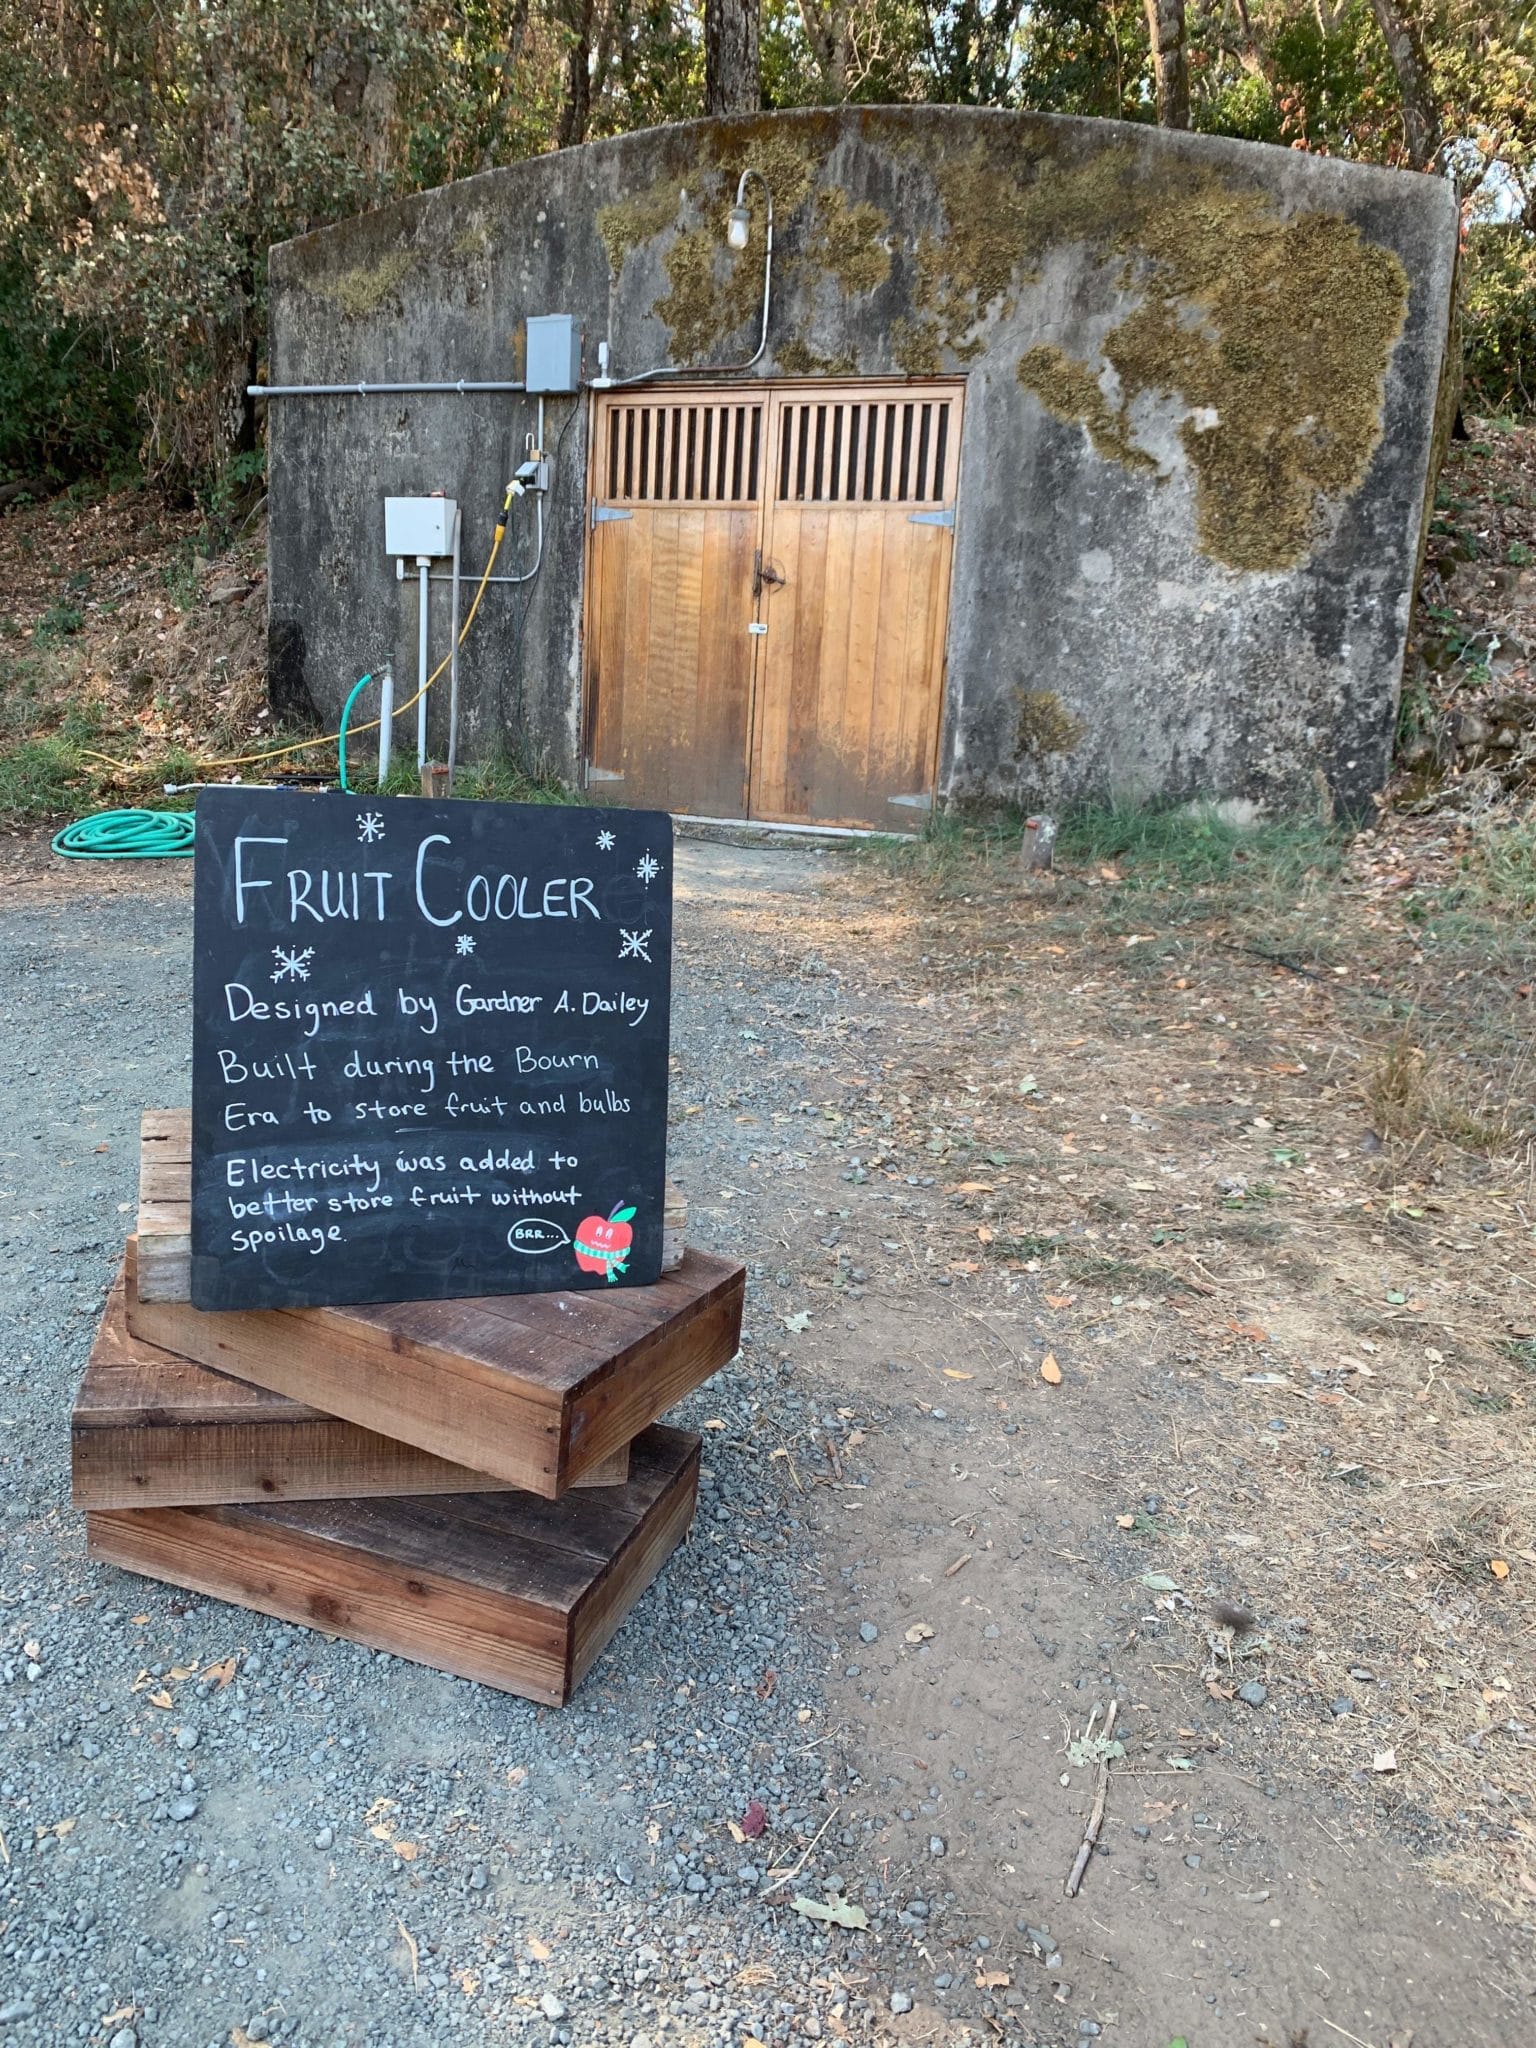 FRUIT COOLER
Designed by Gardner A. Dailey
Built during the Bourn
Era to store fruit and bulbs
Electricity was added to
better store fruit without
spoilage.
BRR...